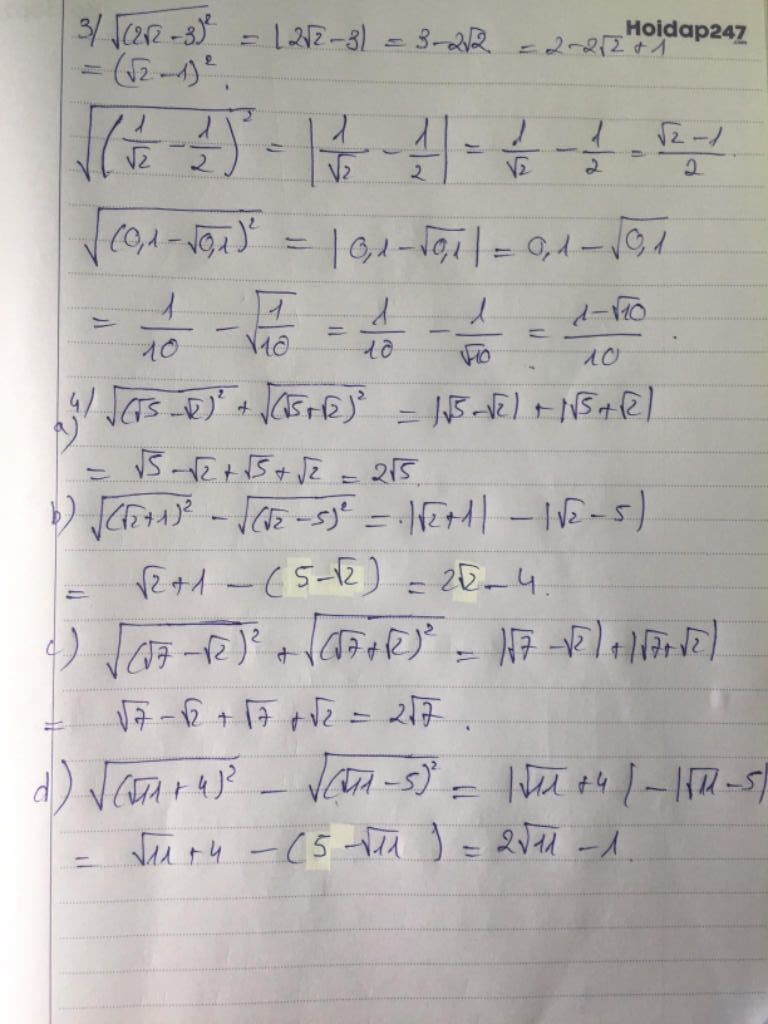 Hoidap247
3/ √(2√2 - 3)² = |2√2 - 3| = 3 - 2√2 = 2 - 2√2 + 1
= (√2 - 1)².
√(1/√2 - 1/2)² = |1/√2 - 1/2| = 1/√2 - 1/2 = (√2 - 1)/2.
√(0,1 - √0,1)² = |0,1 - √0,1| = 0,1 - √0,1
= 1/10 - √(1/10) = 1/10 - 1/√10 = (1 - √10)/10.
4/
a) √(√5 - √2)² + √(√5 + √2)² = |√5 - √2| + |√5 + √2|
= √5 - √2 + √5 + √2 = 2√5.
b) √(√2 + 1)² - √(√2 - 5)² = |√2 + 1| - |√2 - 5|
= √2 + 1 - (5 - √2) = 2√2 - 4.
c) √(√7 - √2)² + √(√7 + √2)² = |√7 - √2| + |√7 + √2|
= √7 - √2 + √7 + √2 = 2√7.
d) √(√11 + 4)² - √(√11 - 5)² = |√11 + 4| - |√11 - 5|
= √11 + 4 - (5 - √11) = 2√11 - 1.